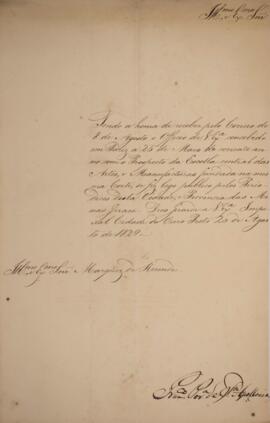 Illmo Exmo Snr
Tendo a honra de receber pelo Correio de
8 de Agosto o Officio de V Exa
em a 25 de Março do corrente an-
no com o Prospecto da Escolla central das
Artes, e Manufacturas fundada na mes-
ma Corte, o fiz logo publico pelos Perio-
dicos desta Cidade, e Provincia das Mi-
nas Geraes. Deos guarde a V Exa Impe-
rial Cidade do Ouro Preto 20 de Agos-
to de 1829.
Illmo Exmo Snr Marquez de Rezende